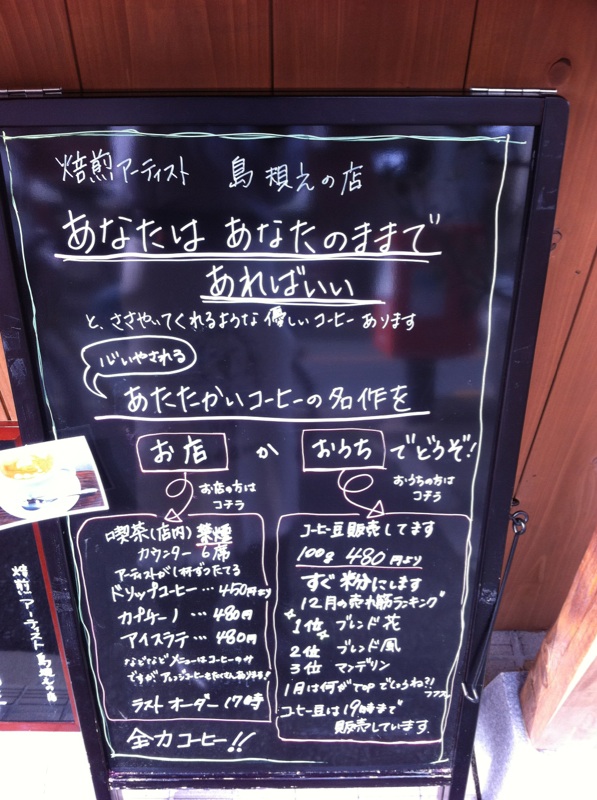 焙煎アーティスト 島 想えの店
あなたは あなたのままで
あればいい
と、ささやいてくれるような 優しいコーヒー あります
心いやされる
あたたかいコーヒーの名作を
お店 か おうち でどうぞ!
お店の方は
コチラ
おうちの方は
コチラ
喫茶(店内) 禁煙
カウンター 6席
アーティストが1杯ずつたてる
ドリップコーヒー … 450円より
カプチーノ … 480円
アイスラテ … 480円
などなど メニューはコーヒーのみ
ですが
ラストオーダー 17時
全力コーヒー!!
コーヒー豆販売してます
100g 480円より
すぐ粉にします
12月の売れ筋ランキング
1位 ブレンド 花
2位 ブレンド 風
3位 マンデリン
1月は何がTOPでしょうね?!
コーヒー豆は19時まで
販売しています.
焙煎アーティスト島